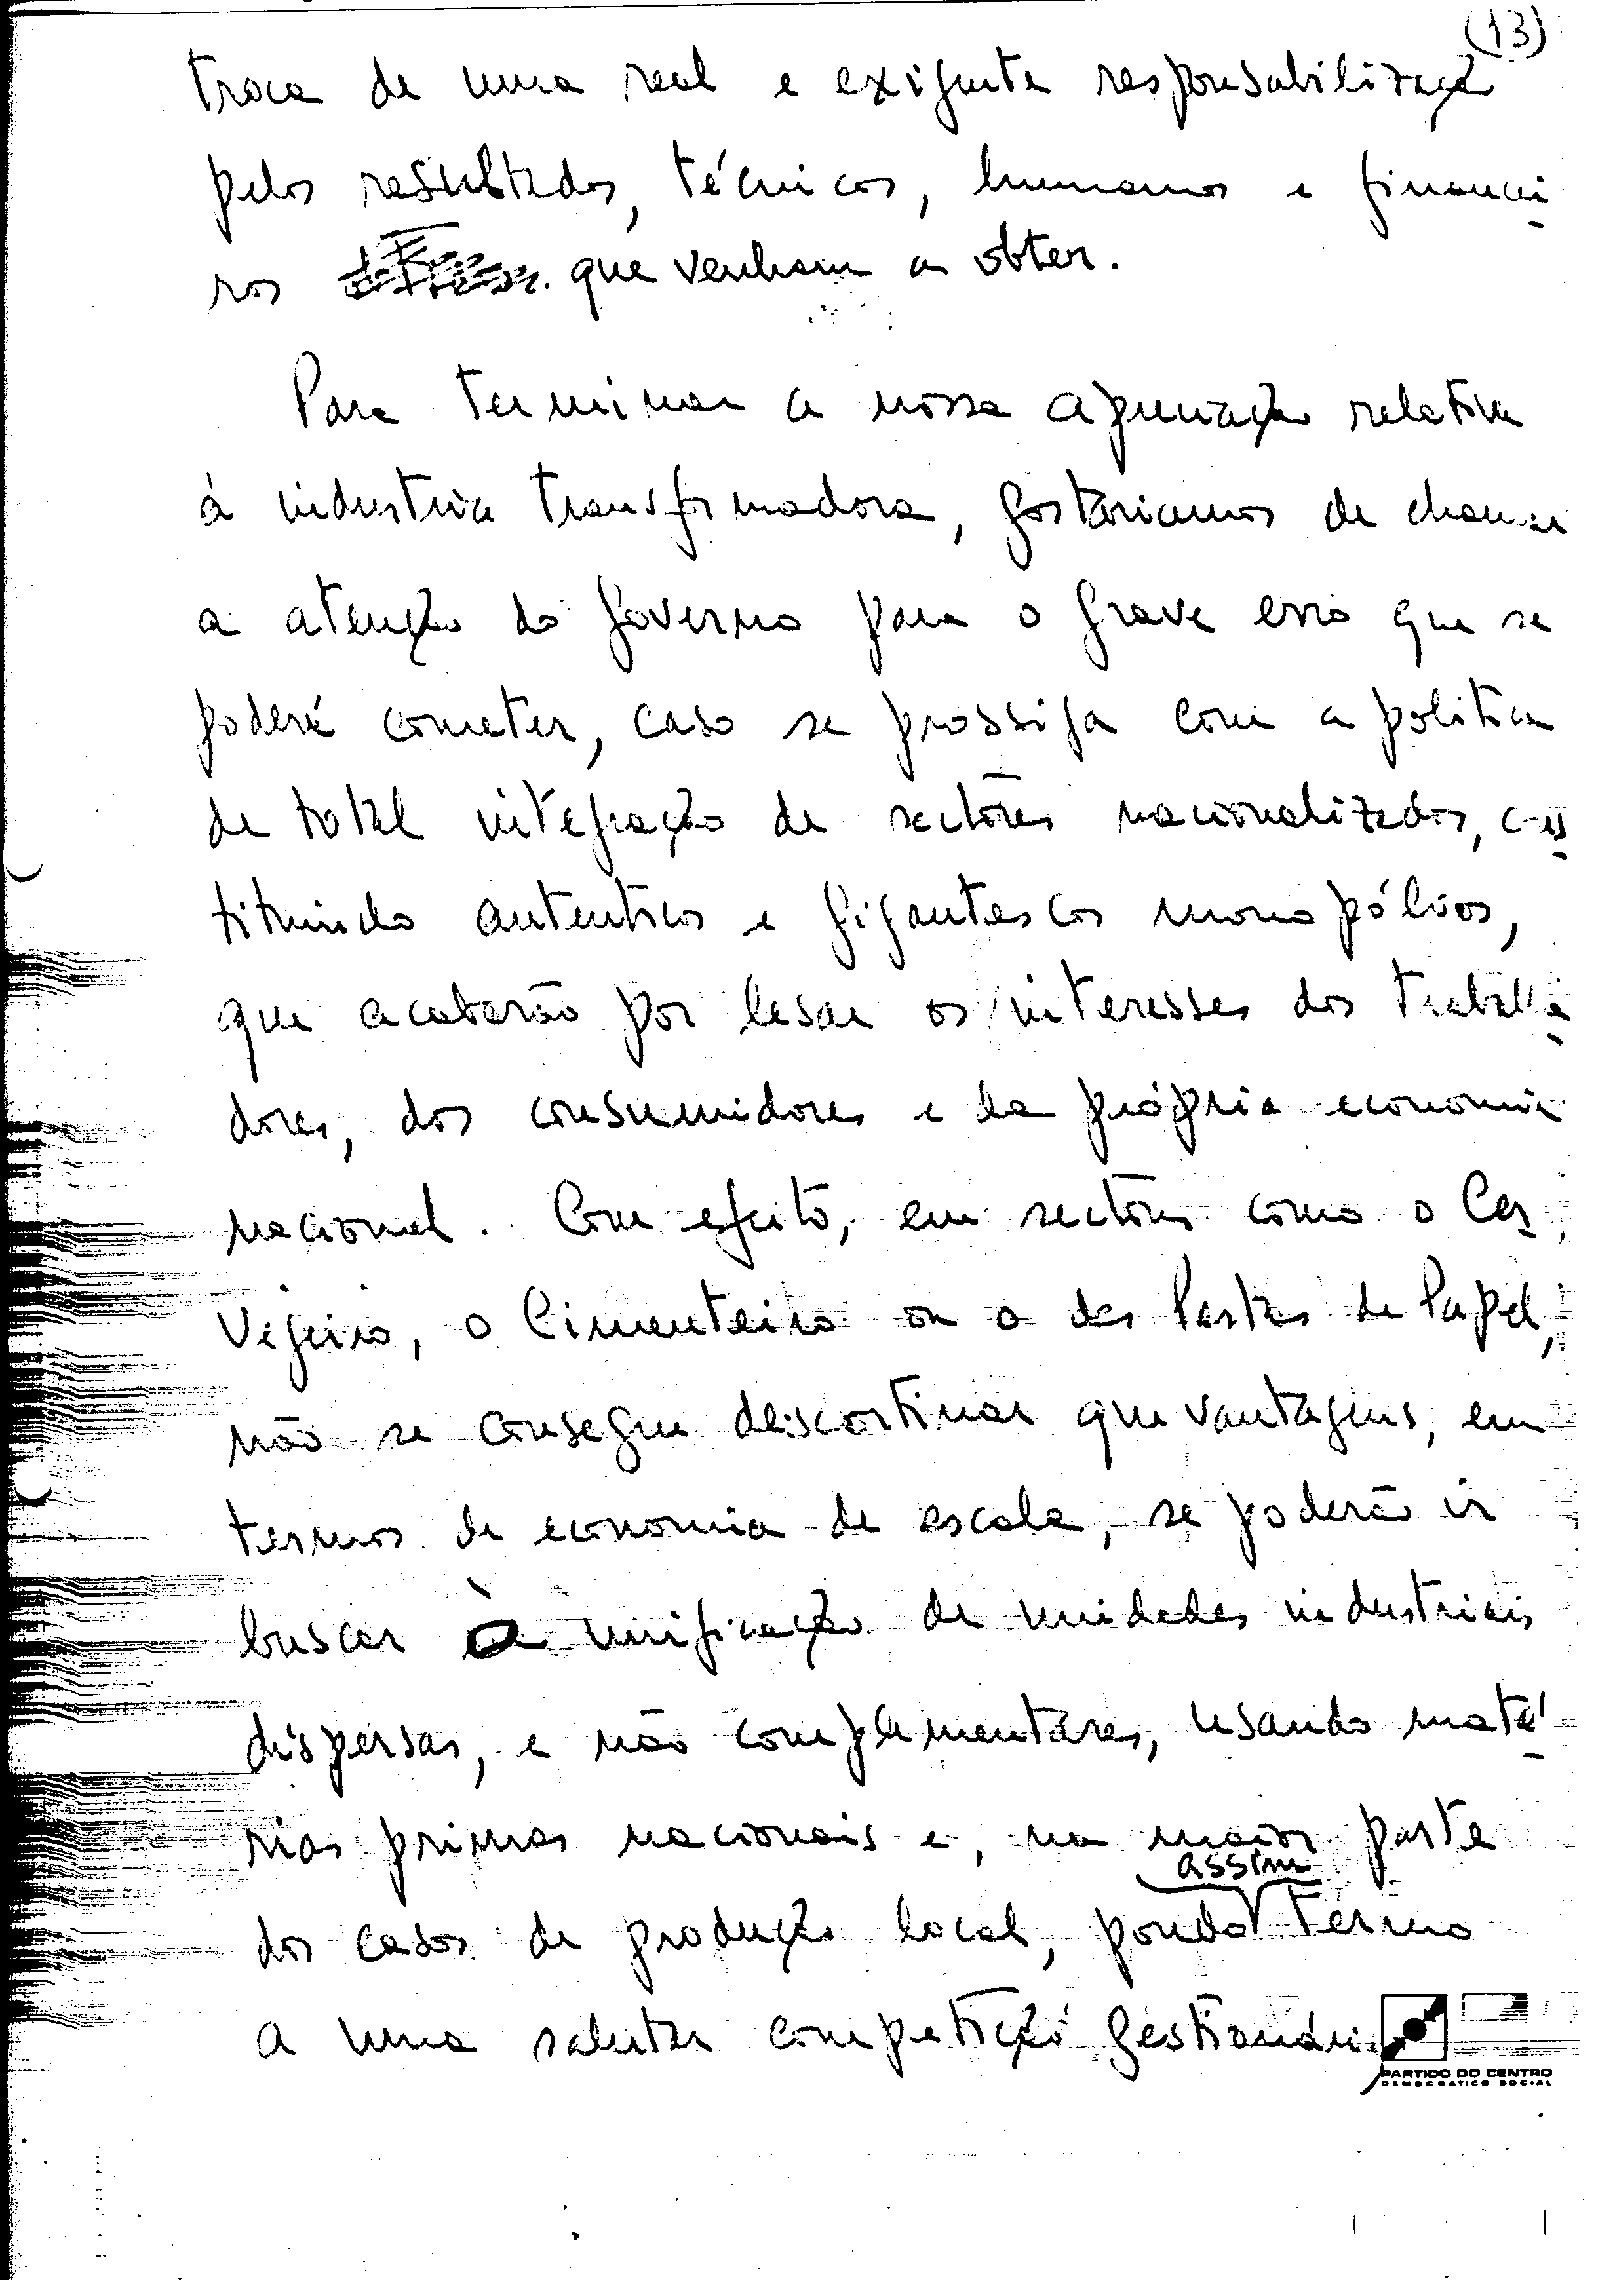 (13)
troca de uma real e exigente responsabilização
pelos resultados, técnicos, humanos e financei
ros que venham a obter.
Para terminar a nossa apreciação relativa
à industria transformadora, gostariamos de chamar
a atenção do governo para o grave erro que se
poderá cometer, caso se prossiga com a politica
de total integração de sectores nacionalizados, cons
tituindo autenticos e gigantescos monopólios,
que acabarão por lesar os interesses dos trabalha
dores, dos consumidores e da própria economia
nacional. Com efeito, em sectores como o Cer
vejeiro, o Cimenteiro ou o das Pastas de Papel,
não se consegue descortinar que vantagens, em
termos de economia de escala, se poderão ir
buscar à unificação de unidades industriais
dispersas, e não complementares, usando maté
rias primas nacionais e, na maior parte
assim
dos casos de produção local, pondo termo
a uma salutar competição gestionári
PARTIDO DO CENTRO
DEMOCRATICO SOCIAL